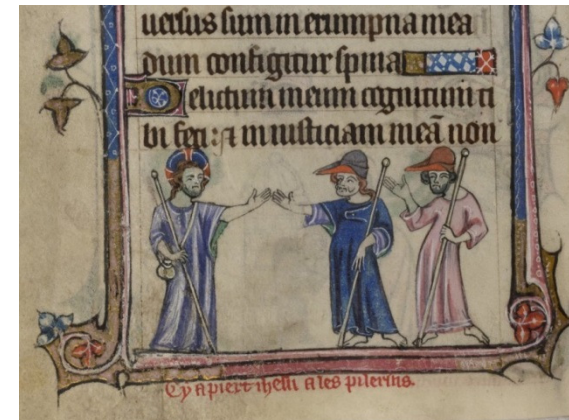 uersus sum in erumpna mea
dum configitur spina
Delictum meum cognitum ti
bi feci : et iniusticiam meā non
Cy apiert ihesu a les pilerins.